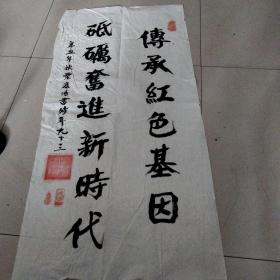 傳承紅色基因
砥礪奮進新時代
辛丑年秋 書 時年九十三